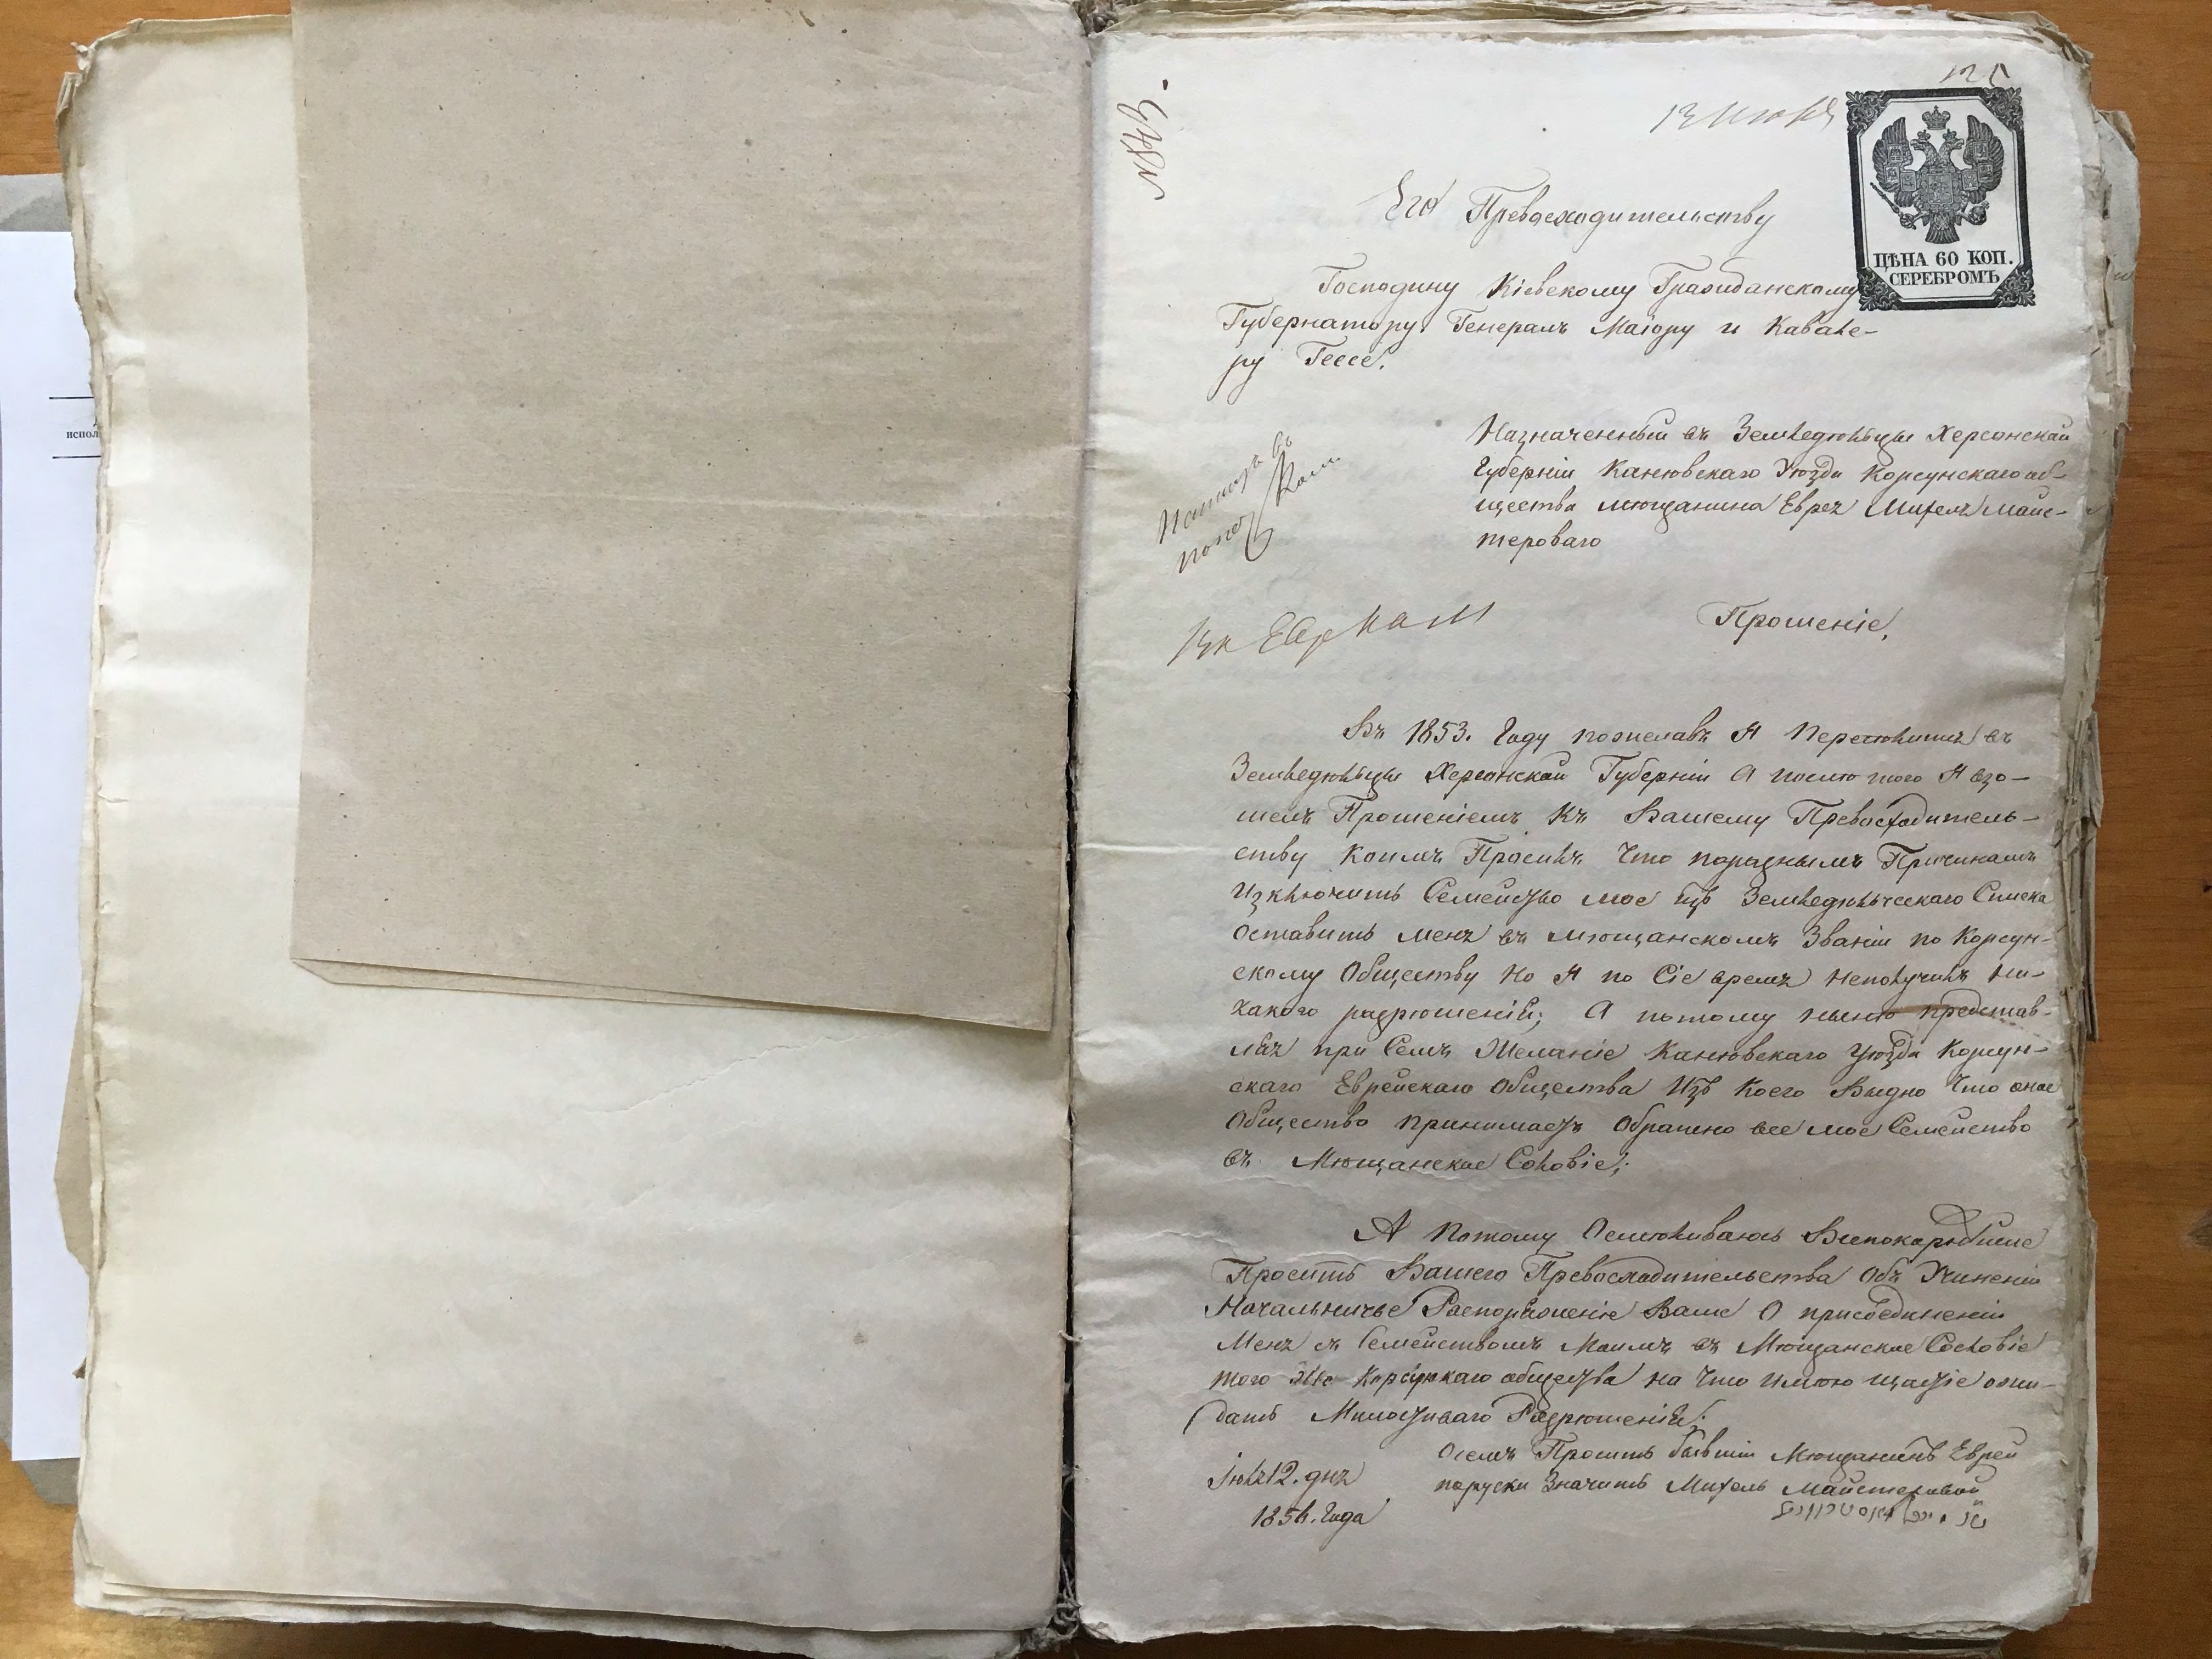 испол
13 Июня
ЦѢНА 60 КОП.
СЕРЕБРОМЪ
Его Превосходительству
Господину Кіевскому Гражданскому
Губернатору Генералъ Маіору и Кавале-
ру Гессе.
Назначенный въ Земледѣльцы Херсонской
Губерніи Каневскаго Уѣзда Корсунскаго об-
щества мѣщанина Еврея Михеля Майс-
тероваго
Прошеніе,
къ Евреям
Въ 1853. Году пожелавъ Я Переселится въ
Земледѣльцы Херсонской Губерніи А послѣ того Я взо-
шелъ Прошеніемъ Къ Вашему Превосходитель-
ству Коимъ Просилъ Что поразнымъ Причинамъ
Изключить Семейство мое изъ Земледѣльческаго Списка
Оставить меня въ мѣщанскомъ Званіи по Корсун-
скому Обществу Но Я по Сіе время Неполучилъ Ни-
какого разрѣшенія; А потому нынѣ представ-
ляя при Семъ Желаніе Каневскаго Уѣзда Корсун-
скаго Еврейскаго Общества Изъ Коего Видно Что оное
Общество принимаетъ Обратно все мое Семейство
въ Мѣщанское Сословіе;
А Потому Осмѣливаюсь Всепокорнѣйше
Просить Вашего Превосходительства Объ Учиненіи
Начальничье Распоряженіе Ваше О присоединеніи
Меня съ Семействомъ Моимъ въ Мѣщанское Сословіе
того Же Корсункаго общества на Что Имѣю щастіе ожи-
дать Милостиваго Разрѣшенія.
Осемъ Проситъ бывшій Мѣщанинъ Еврей
Іюля 12. дня
поруски Значитъ Михель Майстеровой
1854. Года